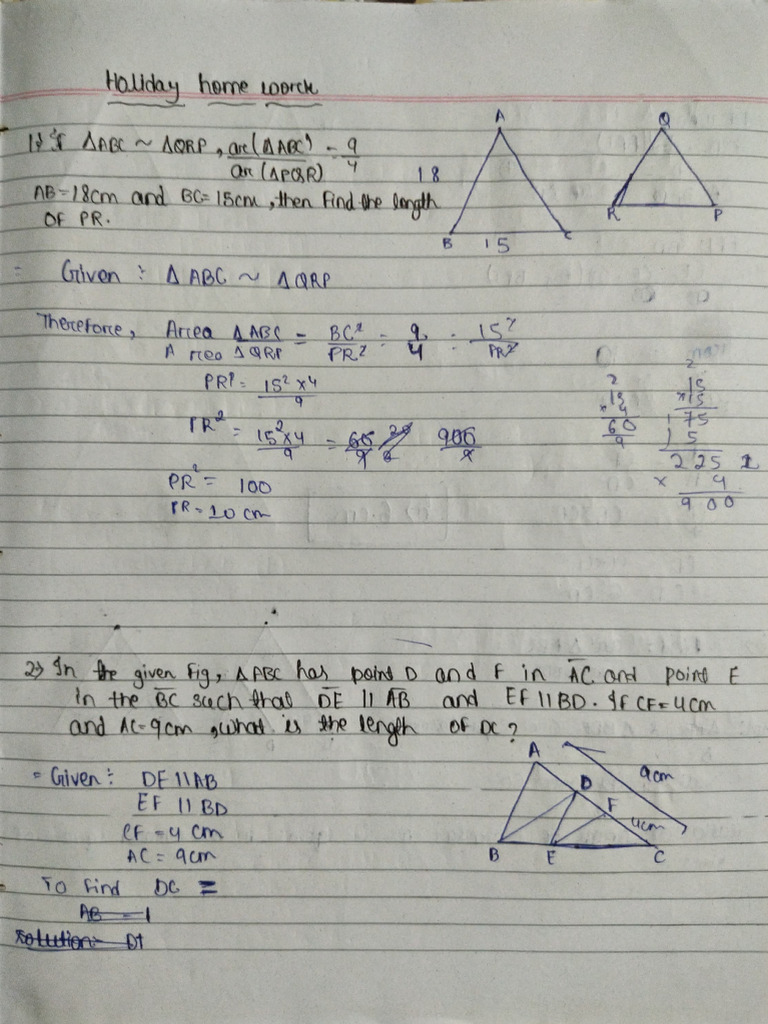 Holiday home worck
1) If ΔABC ~ ΔQRP, arc(ΔABC)/arc(ΔPQR) = 9/4
AB=18cm and BC=15cm, then find the length
OF PR.
A
B
C
18
15
Q
R
P
= Given : ΔABC ~ ΔQRP
Therefore, Arcea ΔABC/Arcea ΔQRP = BC²/PR² = 9/4 = 15²/PR²
PR² = 15²x4/9
PR² = 15²x4/9 = 900/9
PR² = 100
PR = 10 cm
2
15
x 4
60
9
2
15
x15
75
15
225
x 4
900
2) In the given Fig, ΔABC has point D and F in AC and point E
in the BC such that DE || AB and EF || BD. If CF=4cm
and AC=9cm, what is the length of DC?
= Given : DE || AB
EF || BD
CF = 4 cm
AC = 9cm
To Find DC =
AB = 1
Solution- DF
A
D
F
B
E
C
9cm
4cm